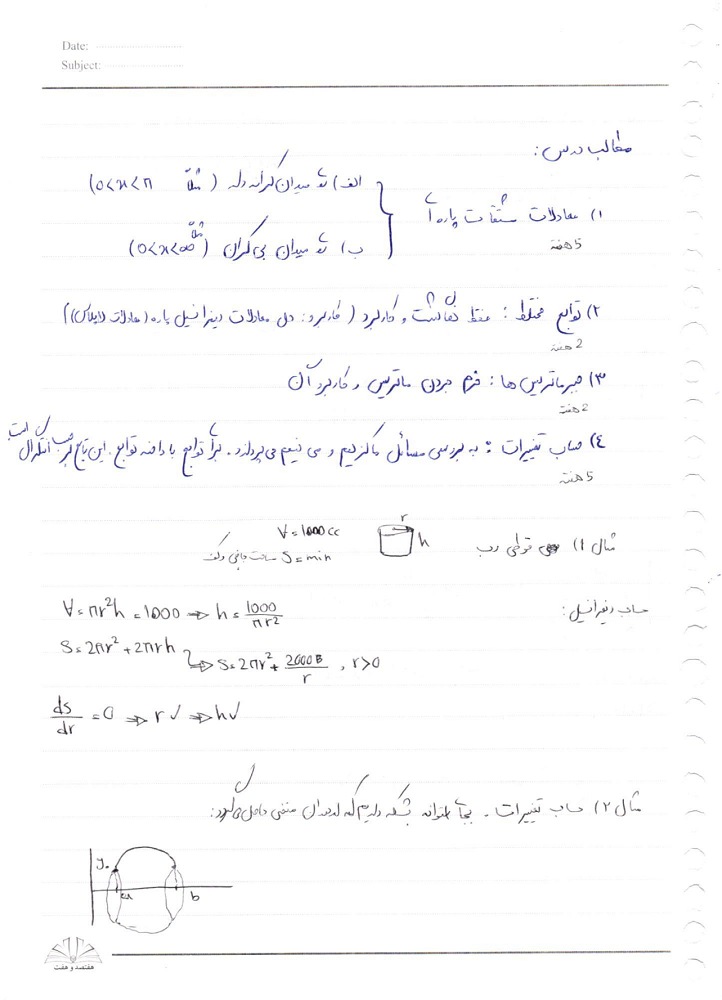 Date:
Subject:
مطالب درس:
۱) معادلات مشتقات پاره‌ای
5 هفته
الف) در میدان کراندار (مثلاً 0<x<π)
ب) در میدان بی کران (مثلاً 0<x<∞)
۲) توابع مختلط: فقط نگاشت و کاربرد (کاربرد: حل معادلات دیفرانسیل پاره (معادلات لاپلاس))
2 هفته
۳) جبر ماتریس ها: فرم جردن ماتریس و کاربرد آن
2 هفته
٤) حساب تغییرات: به بررسی مسائل ماکزیمم و می نیمم می پردازد. برای توابع با دامنه توابع. این تابع برحسب انتگرال است
5 هفته
مثال ۱) قوطی رب
r
h
V = 1000 cc
S = min مساحت جانبی و کف
حساب دیفرانسیل:
V = πr²h = 1000 ⇒ h = 1000/πr²
S = 2πr² + 2πrh
⇒ S = 2πr² + 2000/r , r>0
ds/dr = 0 ⇒ r✓ ⇒ h✓
مثال ۲) حساب تغییرات. بجای استوانه بشکه داریم که از دوران منحنی حاصل می‌گردد:
y₀
a
b
هفتصد و هفت